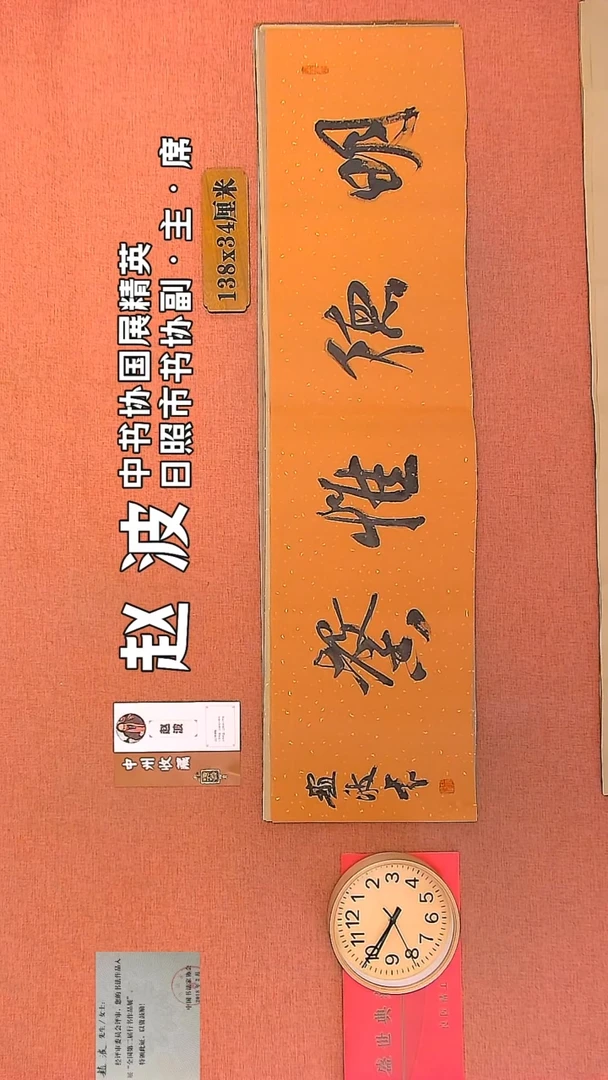 赵波
中书协国展精英
日照市书协副·主·席
138x34厘米
明德惟馨
趙波书
赵波
中州收藏
12
1
2
3
4
5
6
7
8
9
10
11
先生/女士:
经评审委员会评审,您的书法作品入
展“全国第二届行书作品展”,
特颁此证,以资鼓励!
中国书法家协会
盛世典